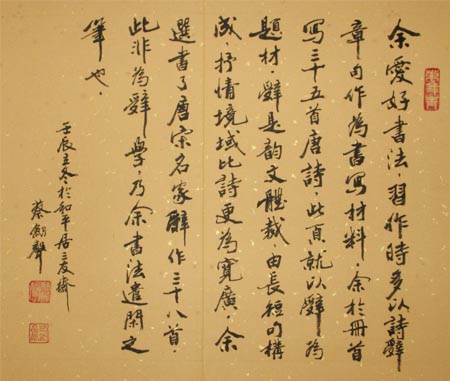 余愛好書法，習作時多以詩辭
章句作為書寫材料，余於冊首
寫三十五首唐詩，此頁就以辭為
題材，辭是韵文體裁，由長短句構
成，抒情境域比詩更為寬廣，余
選書了唐宋名家辭作三十八首，
此非為辭學，乃余書法遣閑之
筆也。
壬辰立冬於和平居三友齋
蔡劍聲